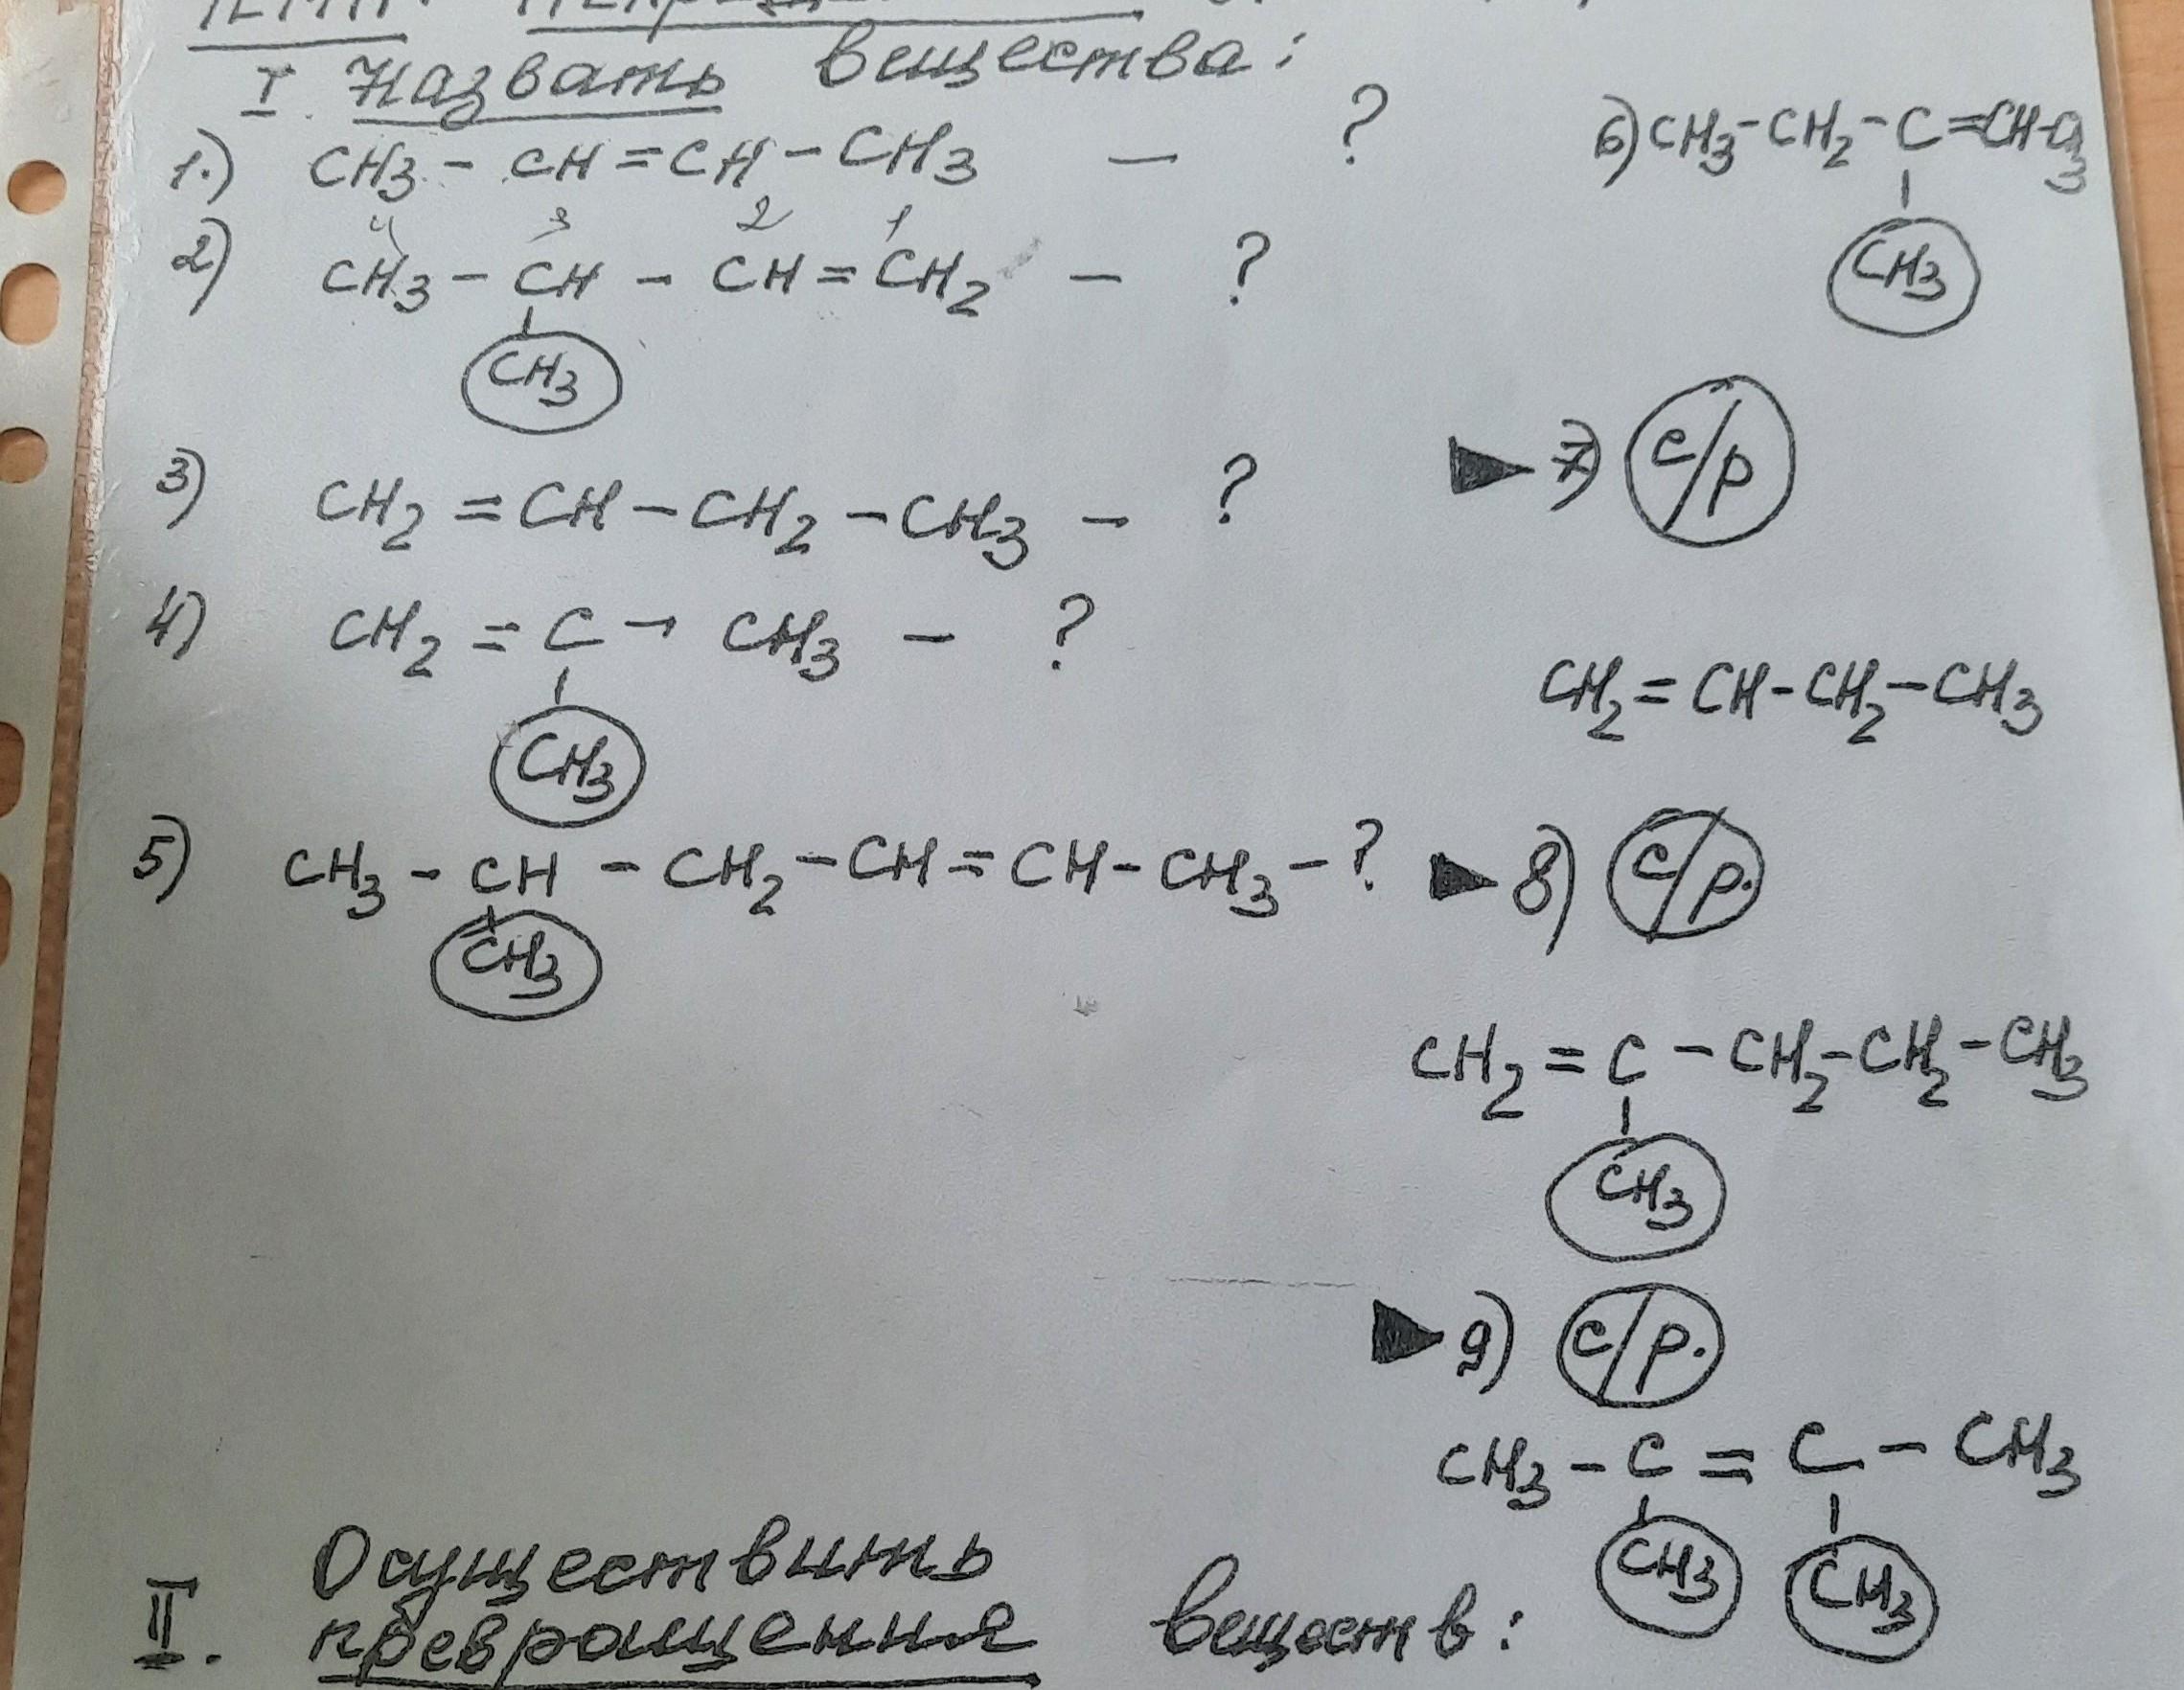 I. Назвать вещества:
1.) CH3 - CH = CH - CH3 - ?
4 3 2 1
2) CH3 - CH - CH = CH2 - ?
CH3
3) CH2 = CH - CH2 - CH3 - ?
4) CH2 = C - CH3 - ?
CH3
5) CH3 - CH - CH2 - CH = CH - CH3 - ?
CH3
6) CH3 - CH2 - C = CH - CH3
CH3
7) с/р
CH2 = CH - CH2 - CH3
8) с/р.
CH2 = C - CH2 - CH2 - CH3
CH3
9) с/р.
CH3 - C = C - CH3
CH3 CH3
II. Осуществить
превращения веществ: